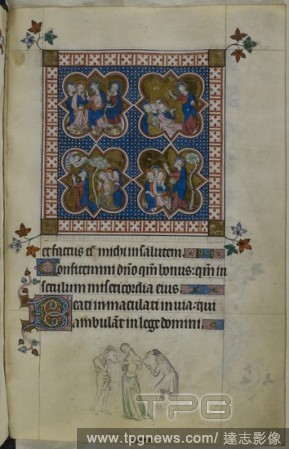 et factus es michi in salutem.
Confitemini dño qm̃ bonus: qm̃ in
seculum misericordia eius
Beati inmaculati in uia: qui
ambulãt in lege domini
TPG
www.tpgnews.com/ 達志影像